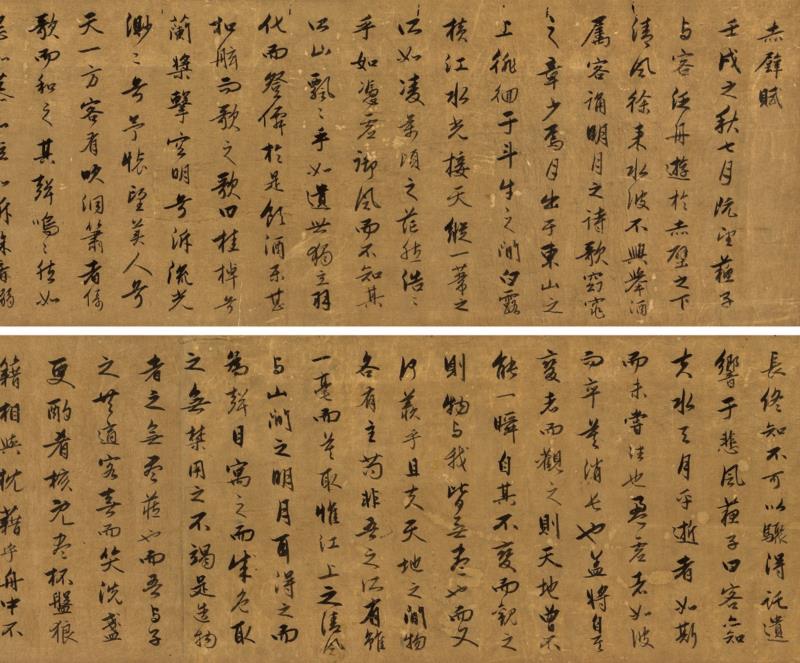 赤壁賦
壬戌之秋七月既望蘇子
與客泛舟遊於赤壁之下
清風徐來水波不興舉酒
屬客誦明月之詩歌窈窕
之章少焉月出于東山之
上徘徊于斗牛之間白露
橫江水光接天縱一葦之
所如凌萬頃之茫然浩〻
乎如憑虛御風而不知其
所止飄〻乎如遺世獨立羽
化而登僊於是飲酒樂甚
扣舷而歌之歌曰桂棹兮
蘭槳擊空明兮泝流光
渺〻兮予懷望美人兮
天一方客有吹洞簫者倚
歌而和之其聲嗚〻然如
長終知不可以驟得託遺
響于悲風蘇子曰客亦知
夫水與月乎逝者如斯
而未嘗往也盈虛者如彼
而卒莫消長也蓋將自其
變者而觀之則天地曾不
能一瞬自其不變而觀之
則物與我皆無盡也而又
何羨乎且夫天地之間物
各有主苟非吾之所有雖
一毫而莫取惟江上之清風
與山間之明月耳得之而
為聲目寓之而成色取
之無禁用之不竭是造物
者之無盡藏也而吾與子
之共適客喜而笑洗盞
更酌肴核既盡杯盤狼
籍相與枕藉乎舟中不